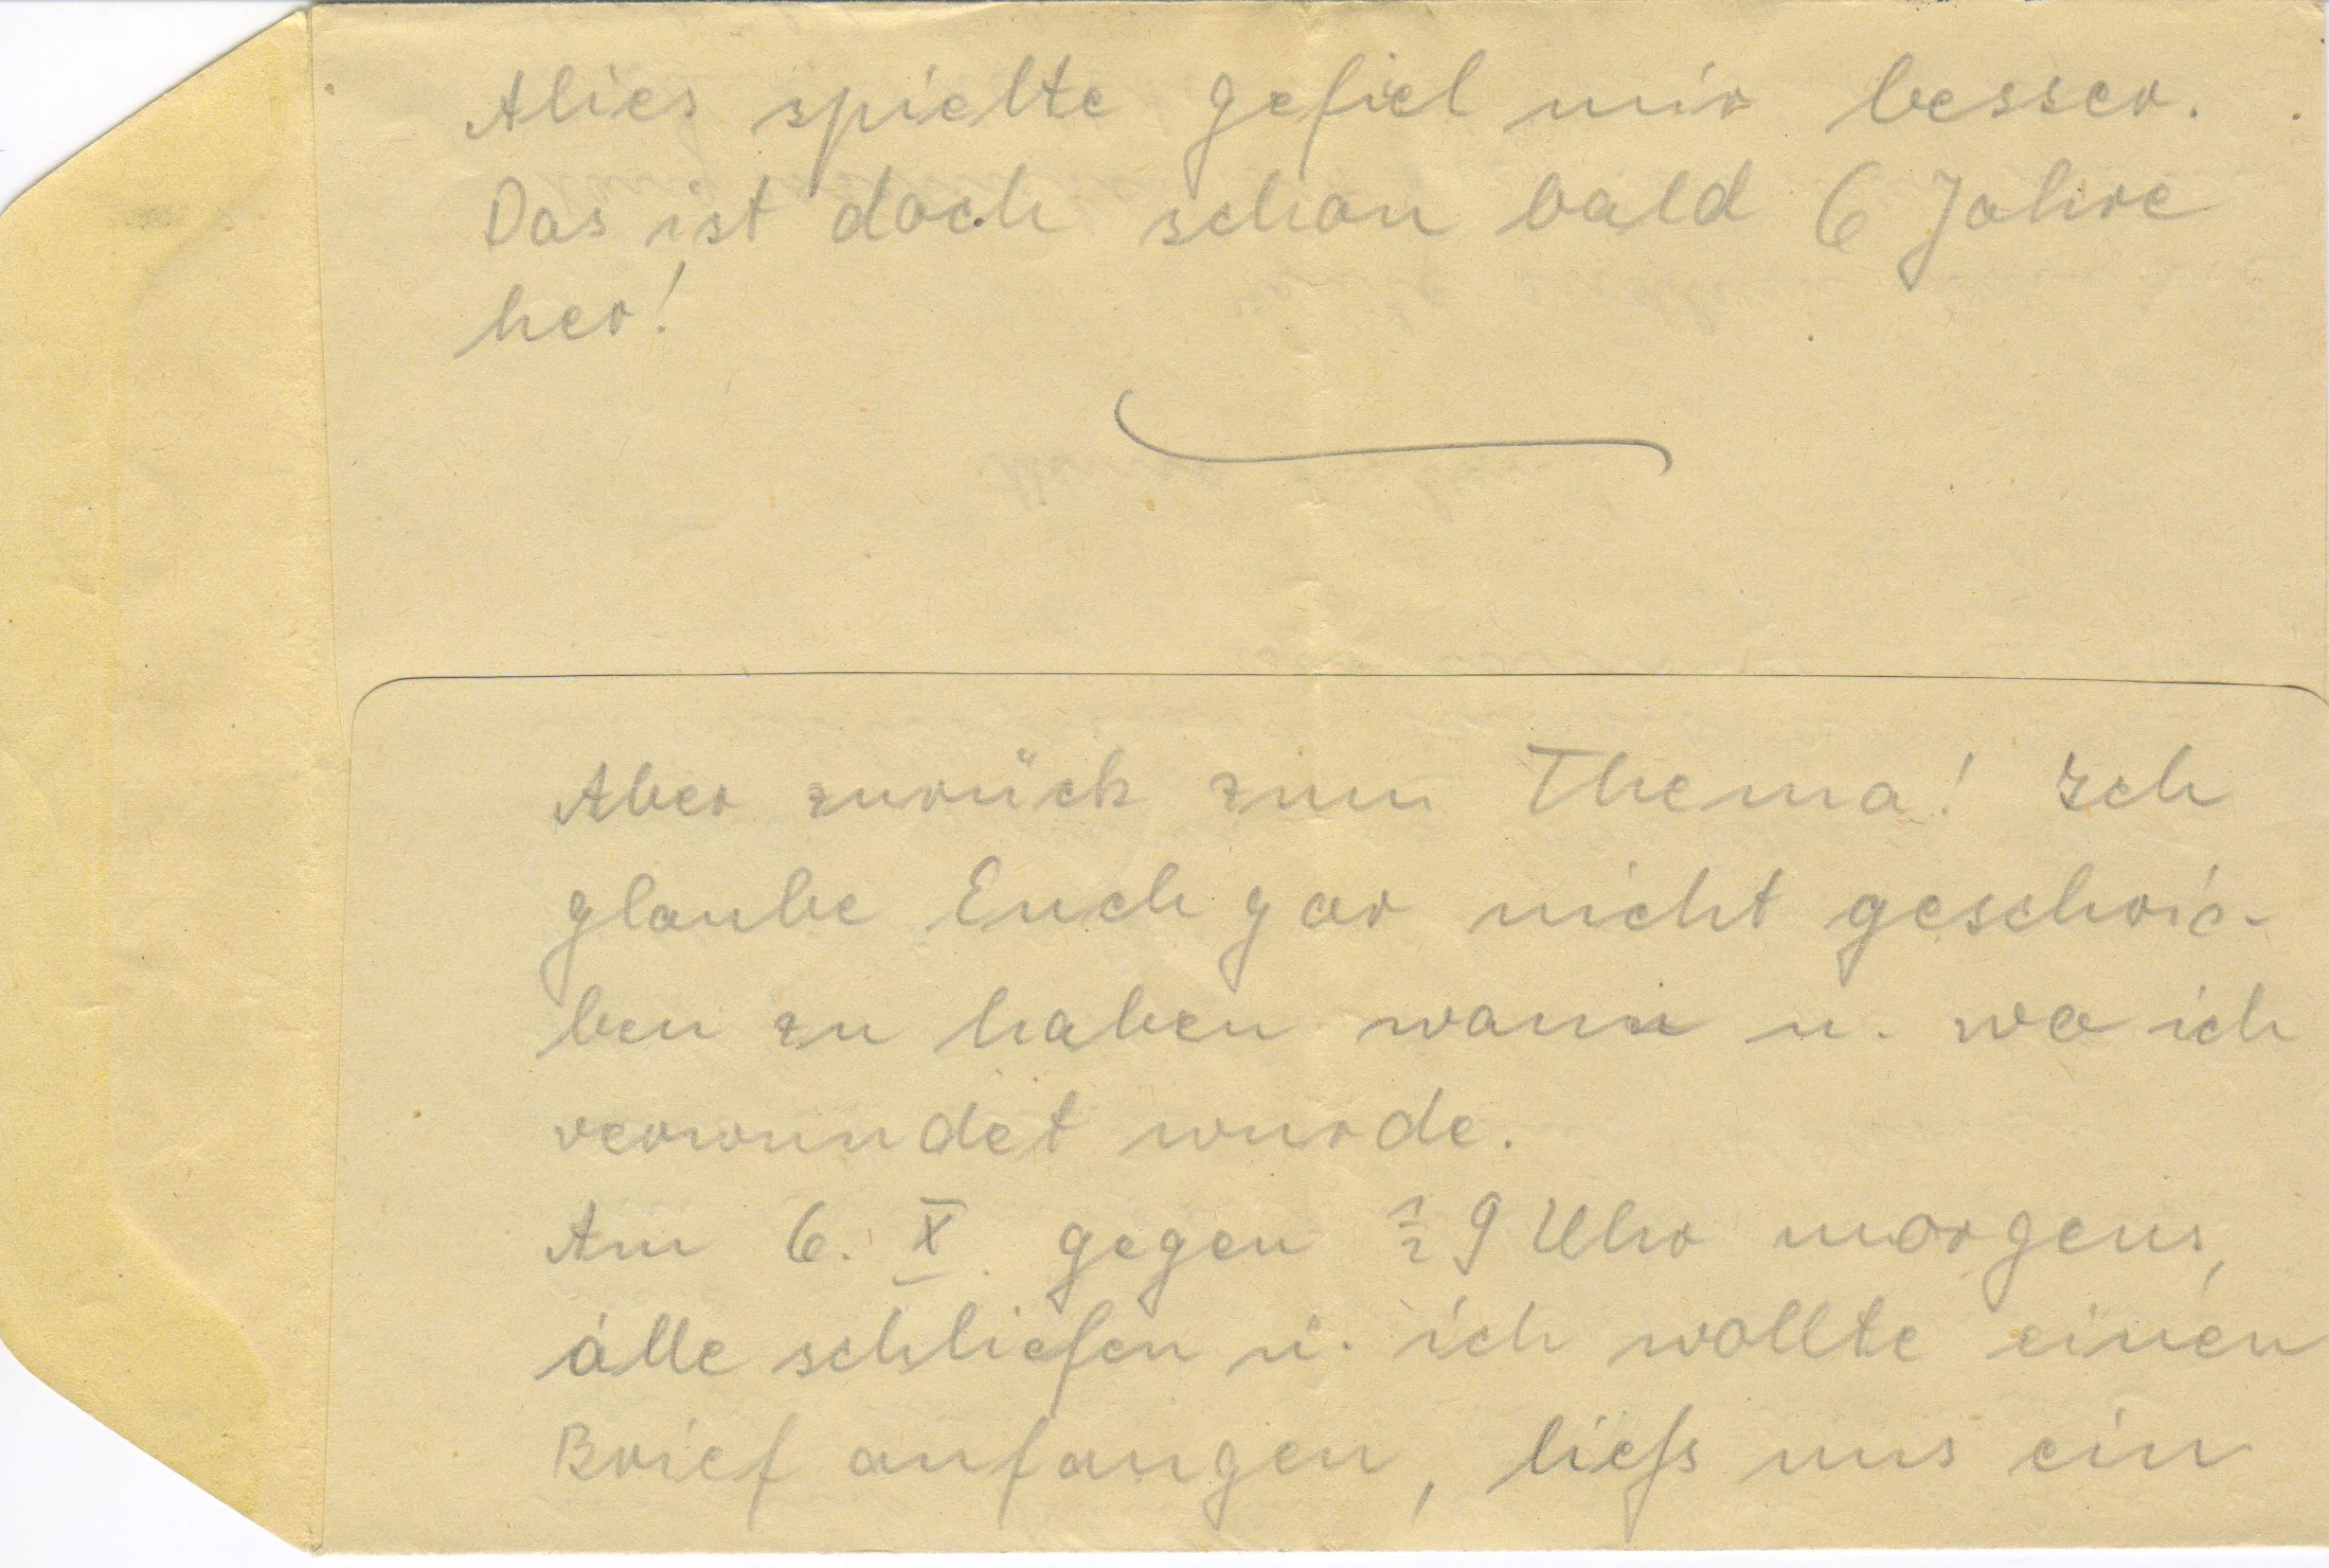 Alies spielte gefiel mir besser.
Das ist doch schon bald 6 Jahre
her!
Aber zurück zum Thema! Ich
glaube Euch gar nicht geschrie-
ben zu haben wann u. wo ich
verwundet wurde.
Am 6. X. gegen ½ 9 Uhr morgens,
alle schliefen u. ich wollte einen
Brief anfangen, liess uns ein